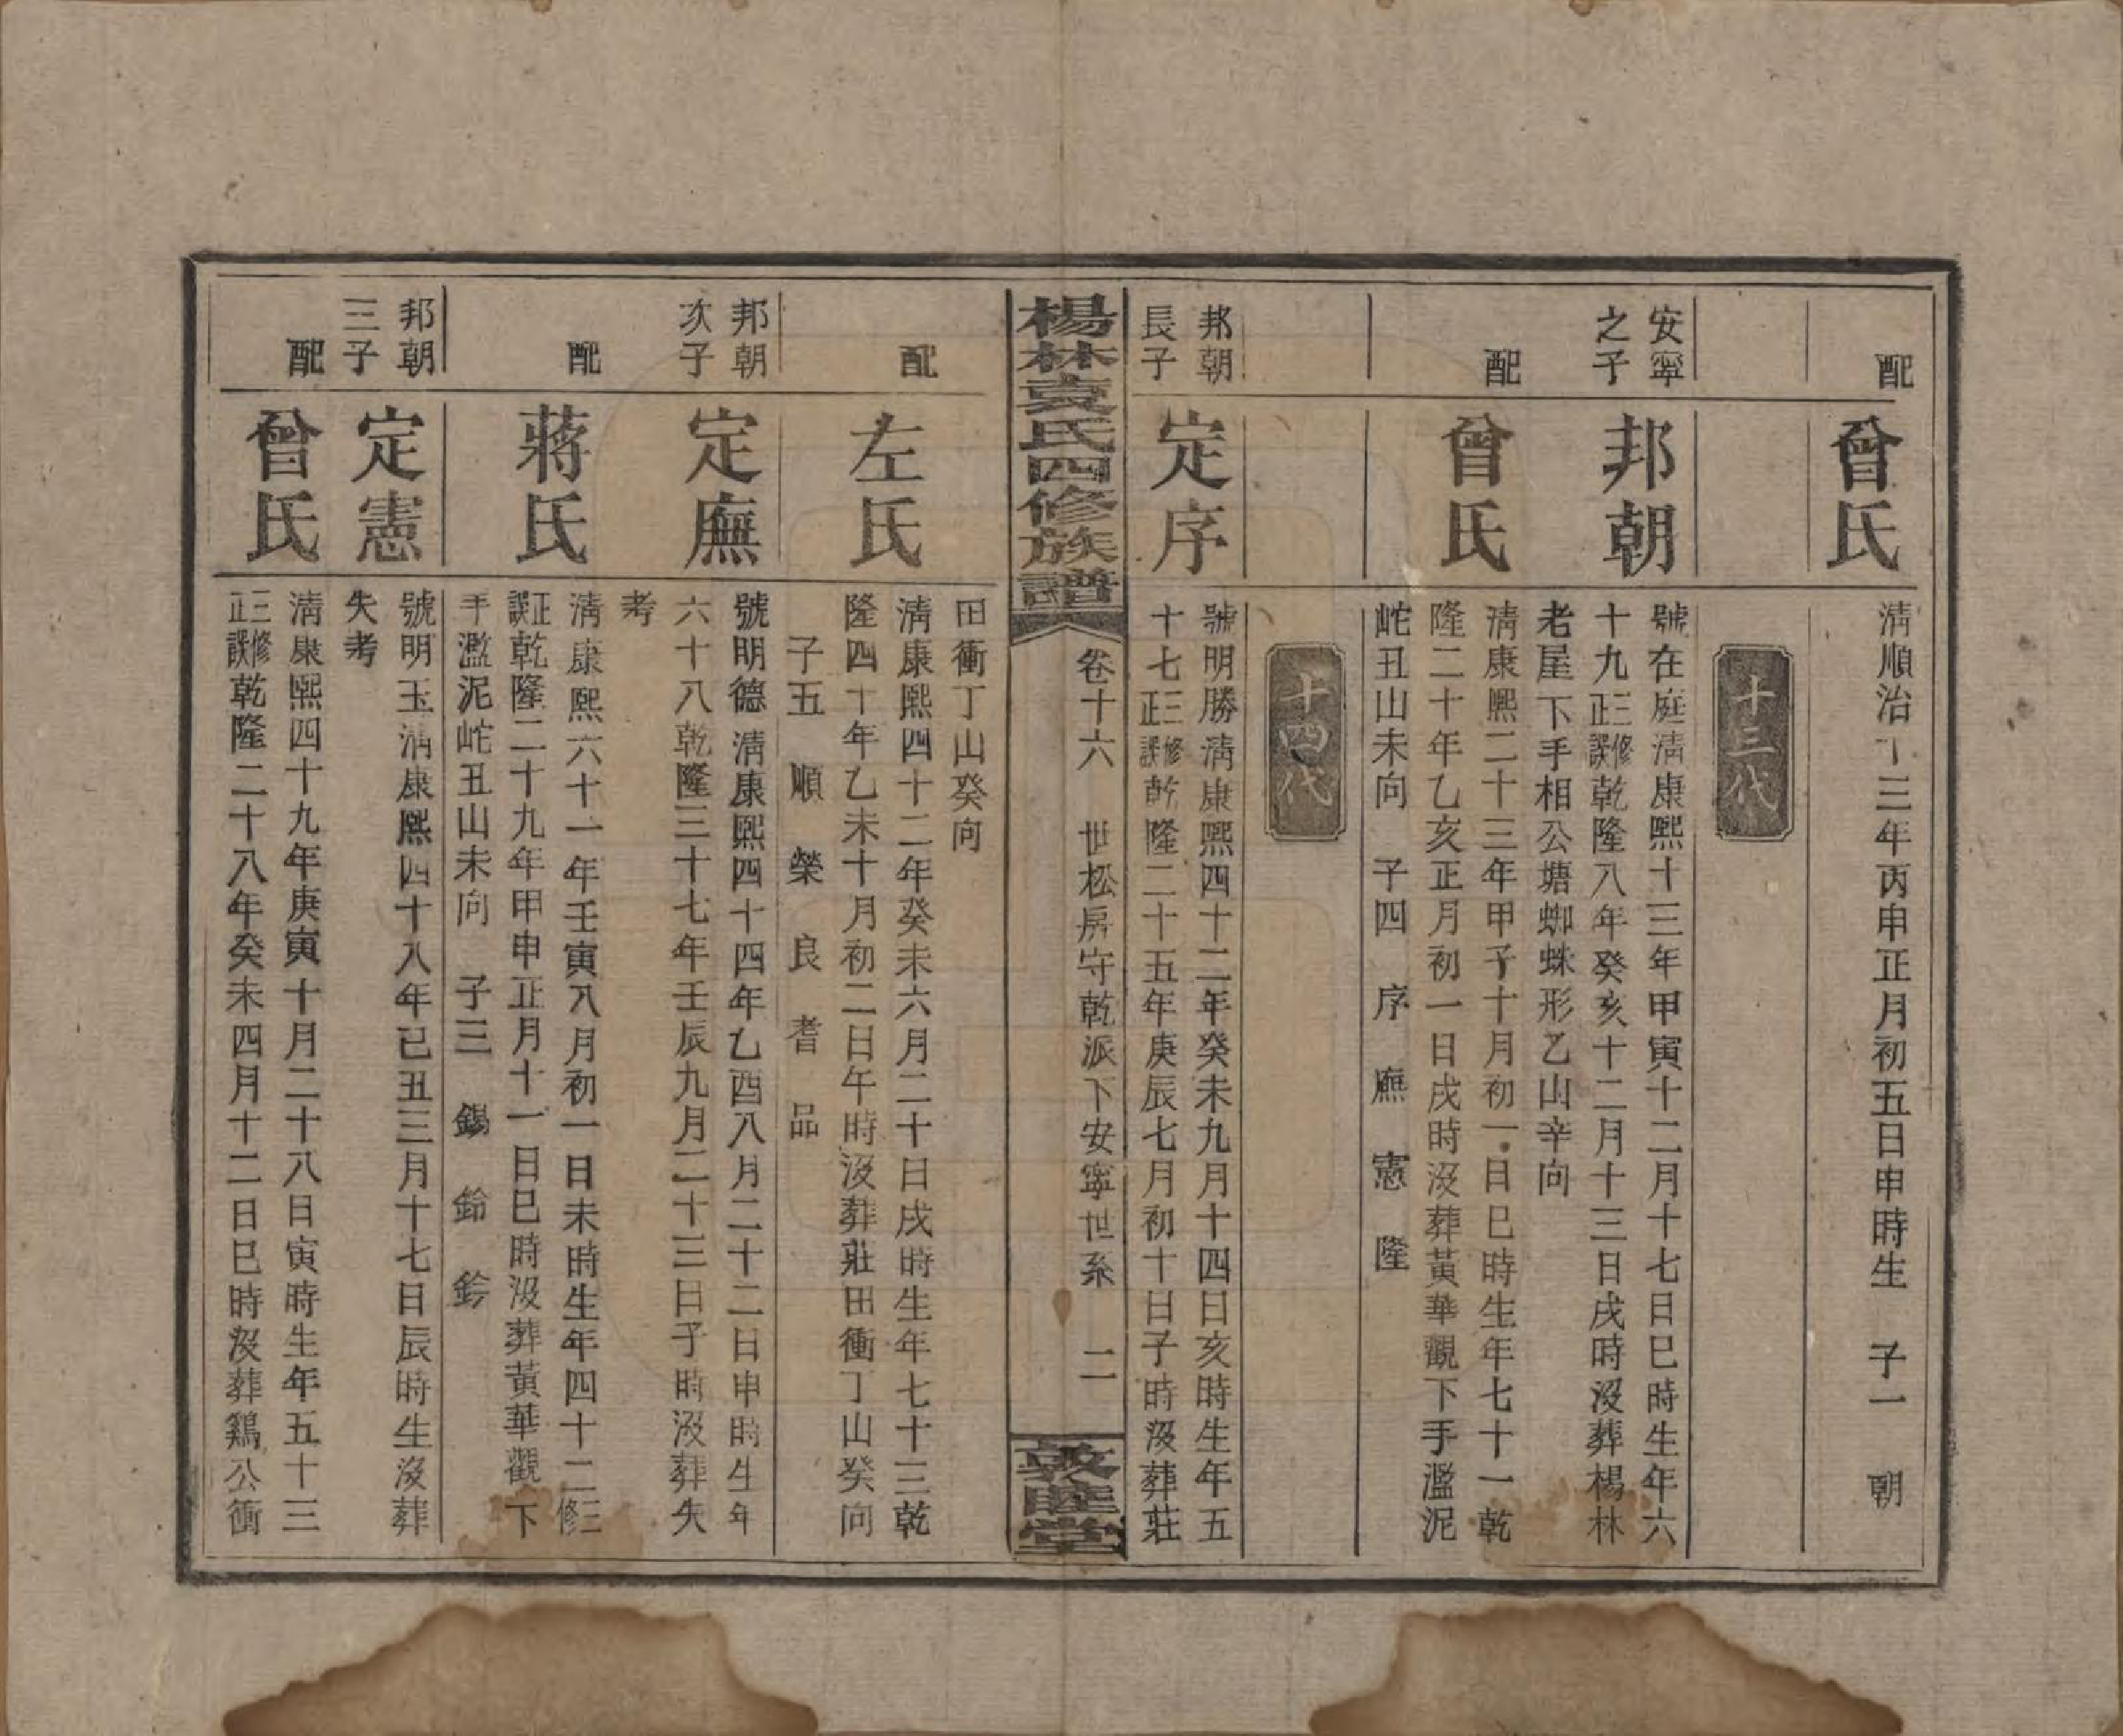 配
曾氏
清順治十三年丙申正月初五日申時生　子一　朝
十三代
安寧
之子
邦朝
號在庭清康熙十三年甲寅十二月十七日巳時生年六
十九三修正誤乾隆八年癸亥十二月十三日戌時沒葬楊林
老屋下手相公塘蜘蛛形乙山辛向
配
曾氏
清康熙二十三年甲子十月初一日巳時生年七十一乾
隆二十年乙亥正月初一日戌時沒葬黃華觀下手濫泥
𡶜丑山未向　子四　序　廡　憲　隆
十四代
邦朝
長子
定序
號明勝清康熙四十二年癸未九月十四日亥時生年五
十七三修正誤乾隆二十五年庚辰七月初十日子時沒葬莊
楊林袁氏四修族譜
卷十六　世松房守乾派下安寧世系　二
敦睦堂
田衝丁山癸向
配
左氏
清康熙四十二年癸未六月二十日戌時生年七十三乾
隆四十年乙未十月初二日午時沒葬莊田衝丁山癸向
子五　順　榮　良　耆　品
邦朝
次子
定廡
號明德清康熙四十四年乙酉八月二十二日申時生年
六十八乾隆三十七年壬辰九月二十三日子時沒葬失
考
配
蔣氏
清康熙六十一年壬寅八月初一日未時生年四十二三修
正誤乾隆二十九年甲申正月十一日巳時沒葬黃華觀下
手濫泥𡶜丑山未向　子三　錫　鈴　鈐
邦朝
三子
定憲
號明玉清康熙四十八年己丑三月十七日辰時生沒葬
失考
配
曾氏
清康熙四十九年庚寅十月二十八日寅時生年五十三
三修正誤乾隆二十八年癸未四月十二日巳時沒葬鷄公衝